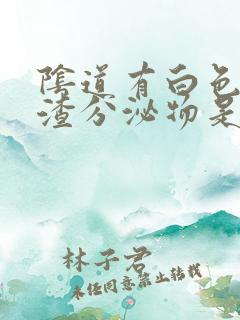 陰道有白色
渣分泌物是
林子君
未经同意禁止转载